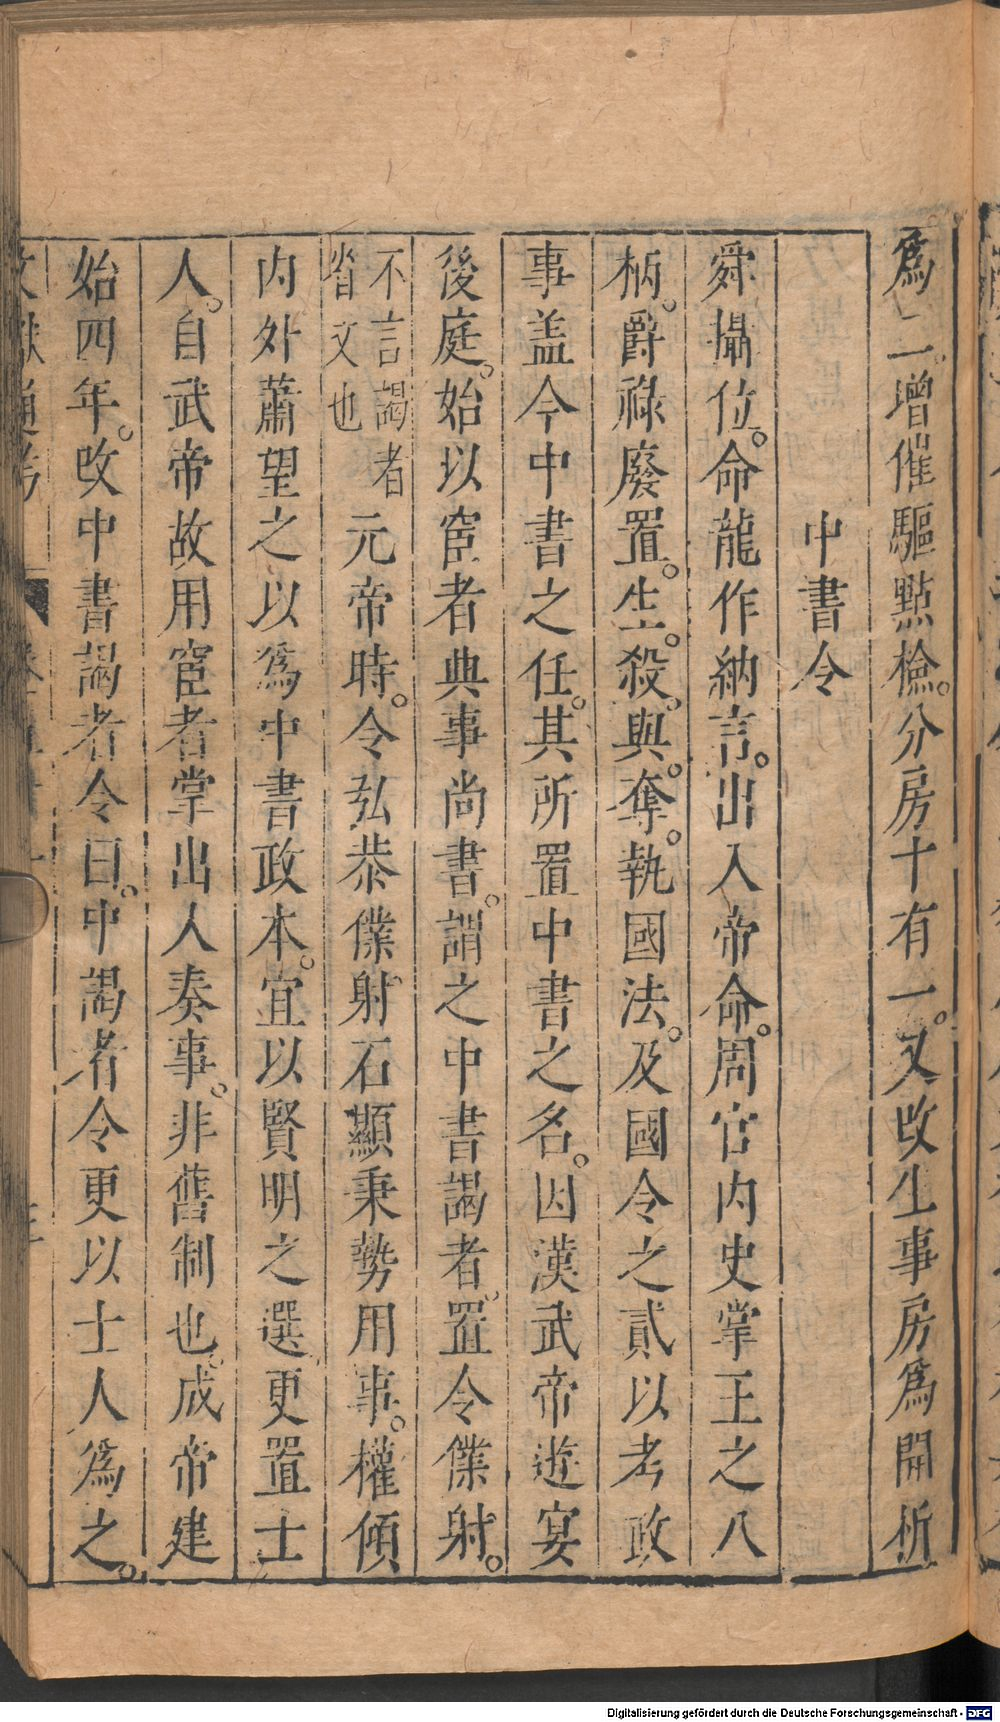 爲二。增催驅點檢。分房十有一。又改生事房爲開析
中書令
舜攝位。命龍作納言。出入帝命。周官内史掌王之八
柄。爵祿廢置。生。殺。與。奪。執國法。及國令之貳以考政
事盖今中書之任。其所置中書之名。因漢武帝遊宴
後庭。始以宦者典事尚書。謂之中書謁者。置令僕射。
不言謁者
省文也
元帝時。令弘恭僕射石顯秉勢用事。權傾
内外蕭望之以爲中書政本。宜以賢明之選更置士
人。自武帝故用宦者掌出人奏事。非舊制也。成帝建
始四年。改中書謁者令曰。中謁者令更以士人爲之。
文獻通考
Digitalisierung gefördert durch die Deutsche Forschungsgemeinschaft - DFG